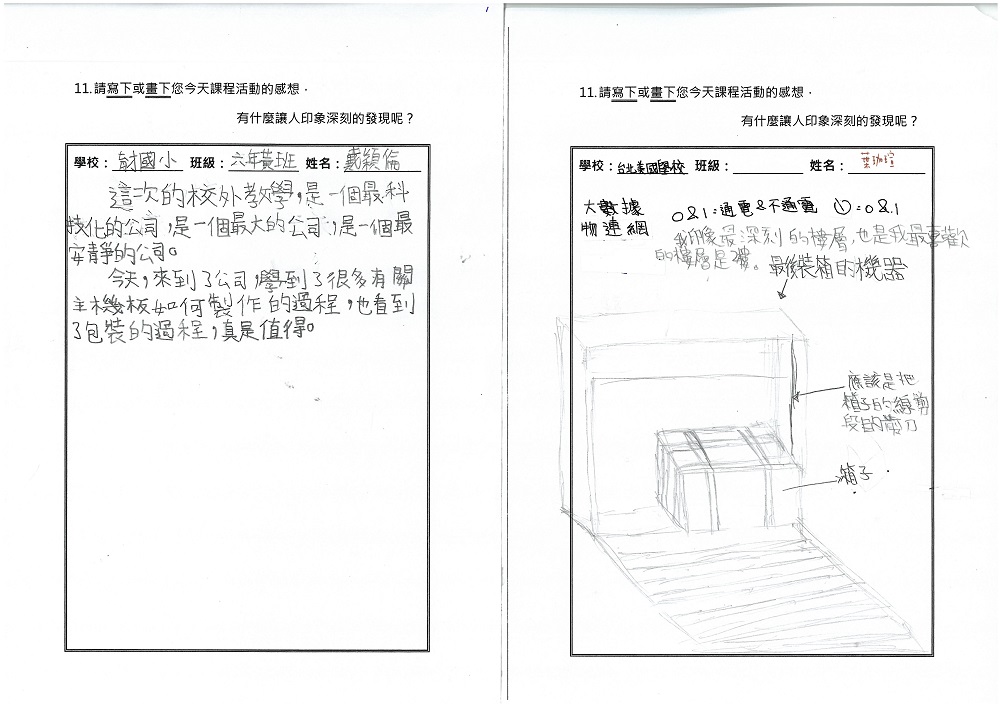 11.請寫下或畫下您今天課程活動的感想．
有什麼讓人印象深刻的發現呢？
學校： 國小 班級： 六年黃班 姓名： 戴穎倫
這次的校外教學，是一個最科
技化的公司，是一個最大的公司，是一個最
安靜的公司。
今天，來到了公司，學到了很多有關
主機板如何製作的過程，也看到
了包裝的過程，真是值得。
11.請寫下或畫下您今天課程活動的感想．
有什麼讓人印象深刻的發現呢？
學校： 台北美國學校 班級： 姓名： 葉珈瑄
大數據
物連網
0&1=通電&不通電 =0&1
我印像最深刻的樓層，也是我最喜歡
的樓層是2樓。最後裝箱的機器
應該是把
箱子的線剪
段的剪刀
箱子